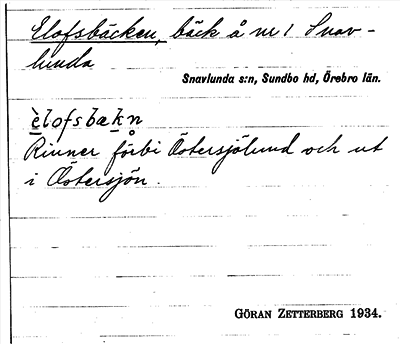 Elofsbäcken, bäck å nr 1 Snav-
lunda
Snavlunda s:n, Sundbo hd, Örebro län.
èlofsbækn
Rinner förbi Östersjölund och ut
i Östersjön.
GÖRAN ZETTERBERG 1934.